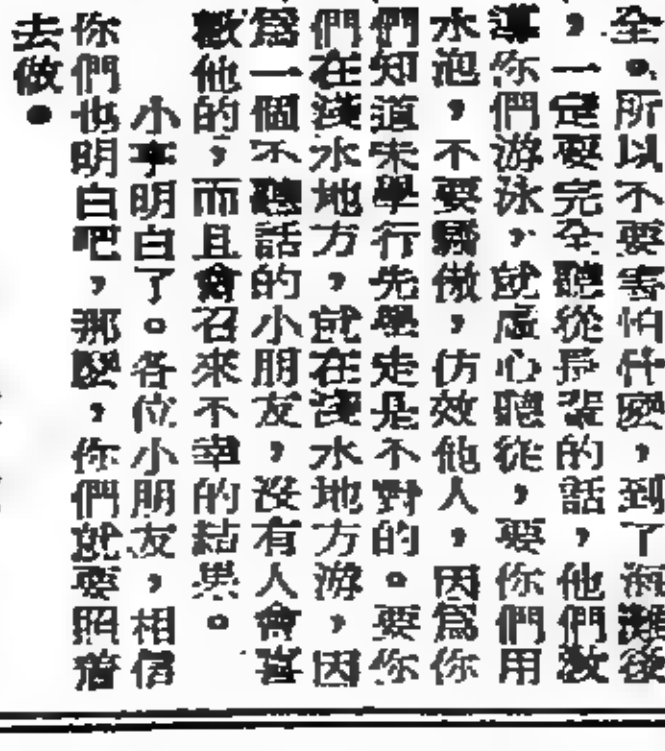 全。所以不要害怕什麼,到了海灘後
,一定要完全聽從長輩的話,他們教
導你們游泳,就虛心聽從,要你們用
水泡,不要驕傲,仿效他人,因爲你
們知道未學行先學走是不對的。要你
們在淺水地方,就在淺水地方游,因
爲一個不聽話的小朋友,沒有人會喜
歡他的,而且會召來不幸的結果。
小事明白了。各位小朋友,相信
你們也明白吧,那麼,你們就要照着
去做。